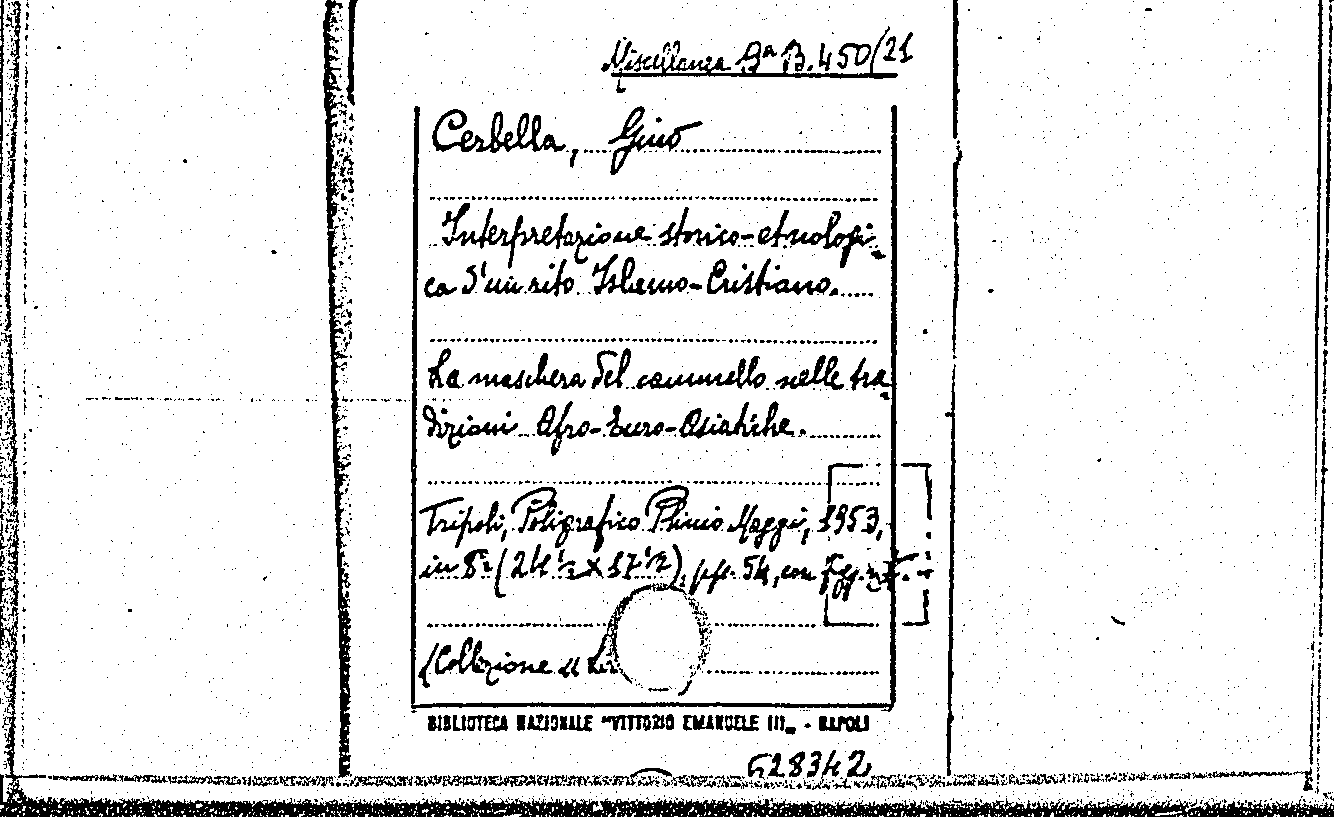 Miscellanea Bª B. 450/21
Cerbella, Gino
Interpretazione storico-etnologi-
ca d'un rito Islamo-Cristiano.
La maschera del cammello nelle tra-
dizioni Afro-Euro-Asiatiche.
Tripoli, Poligrafico Plinio Maggi, 1953,
in 8º (24 ½ x 17 ½), pp. 54, con figg. n. t.
(Collezione
BIBLIOTECA NAZIONALE "VITTORIO EMANUELE III„ - NAPOLI
628342